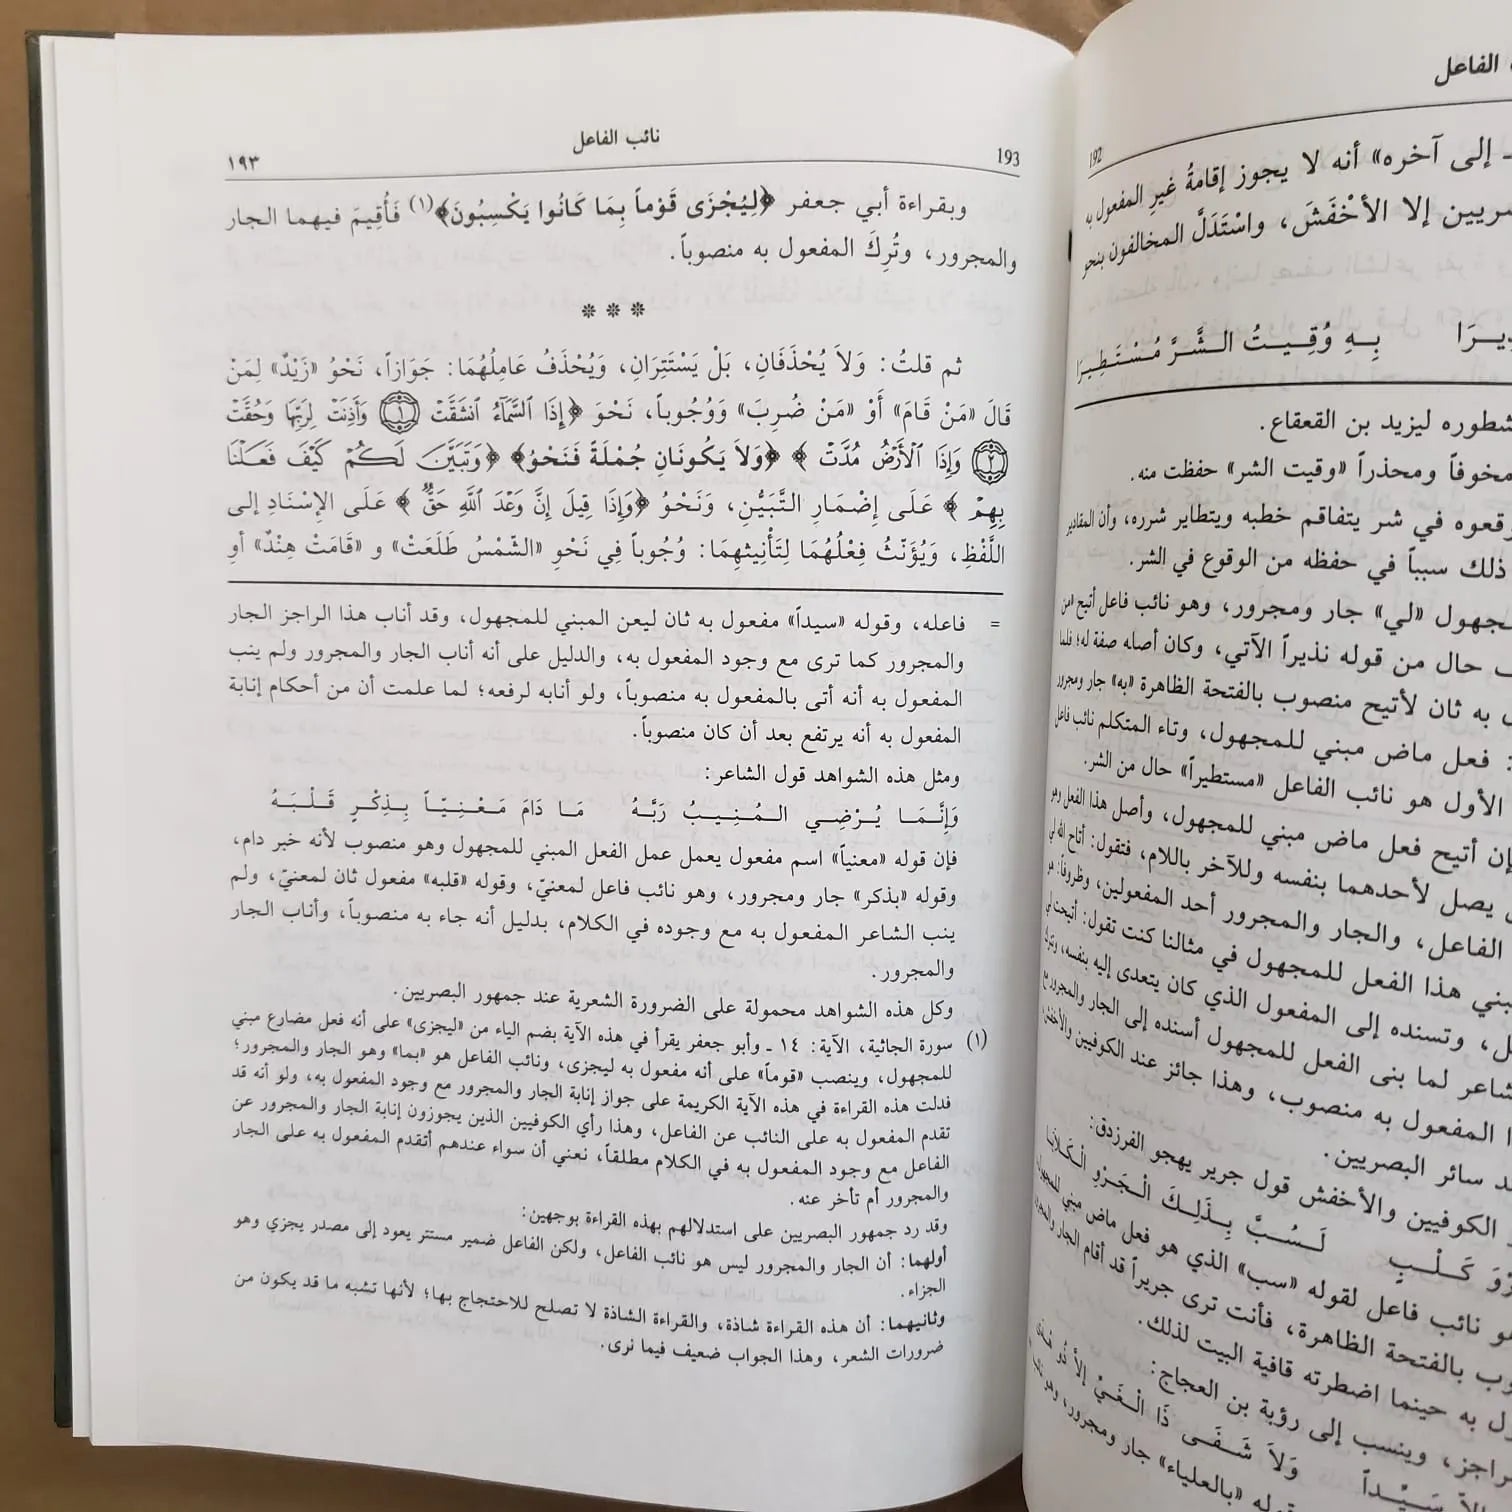 الفاعل
192
- إلى آخره» أنه لا يجوز إقامةُ غيرِ المفعول به
إلا الأَخْفَشَ، واسْتَدَلَّ المخالفون بنحو
بِهِ وُقِيتُ الشَّرَّ مُسْتَطِيرَا
ليزيد بن القعقاع.
ومحذراً «وقيت الشر» حفظت منه.
في شر يتفاقم خطبه ويتطاير شرره، وأن المقادير
ذلك سبباً في حفظه من الوقوع في الشر.
«لي» جار ومجرور، وهو نائب فاعل أتيح «من
حال من قوله نذيراً الآتي، وكان أصله صفة له؛ فلما
به ثان لأتيح منصوب بالفتحة الظاهرة «به» جار ومجرور
: فعل ماض مبني للمجهول، وتاء المتكلم نائب فاعل
الأول هو نائب الفاعل «مستطيراً» حال من الشر.
أتيح فعل ماض مبني للمجهول، وأصل هذا الفعل وهو
يصل لأحدهما بنفسه وللآخر باللام، فتقول: أتاح الله لي
الفاعل، والجار والمجرور أحد المفعولين،
هذا الفعل للمجهول في مثالنا كنت تقول: أتيحت لي
وتسنده إلى المفعول الذي كان يتعدى إليه بنفسه،
لما بنى الفعل للمجهول أسنده إلى الجار والمجرور مع
المفعول به منصوب، وهذا جائز عند الكوفيين والأخفش
سائر البصريين.
الكوفيين والأخفش قول جرير يهجو الفرزدق:
كَلْبٍ لَسُبَّ بِذَلِكَ الْجَرْوِ الْكَلَابَا
نائب فاعل لقوله «سب» الذي هو فعل ماض مبني للمجهول
بالفتحة الظاهرة، فأنت ترى جريراً قد أقام الجار والمجرور
به حينما اضطرته قافية البيت لذلك.
وينسب إلى رؤبة بن العجاج:
وَلَا شَفَى ذَا الْغَيِّ إِلَّا ذُو هُدَى
«بالعلياء» جار ومجرور، وهو
193 نائب الفاعل ١٩٣
وبقراءة أبي جعفر ﴿لِيُجْزَى قَوْماً بِمَا كَانُوا يَكْسِبُونَ﴾(١) فَأُقِيمَ فيهما الجار
والمجرور، وتُرِكَ المفعول به منصوباً.
* * *
ثم قلتُ: وَلاَ يُحْذَفَانِ، بَلْ يَسْتَتِرَانِ، وَيُحْذَفُ عَامِلُهُمَا: جَوَازاً، نَحْوُ «زَيْدٌ» لِمَنْ
قَالَ «مَنْ قَامَ» أَوْ «مَنْ ضُرِبَ» وَوُجُوباً، نَحْوَ ﴿إِذَا ٱلسَّمَآءُ ٱنشَقَّتْ ١ وَأَذِنَتْ لِرَبِّهَا وَحُقَّتْ
٢ وَإِذَا ٱلْأَرْضُ مُدَّتْ﴾ ﴿وَلاَ يَكُونَانِ جُمْلَةً فَنَحْوُ﴾ ﴿وَتَبَيَّنَ لَكُمْ كَيْفَ فَعَلْنَا
بِهِمْ﴾ عَلَى إِضْمَارِ التَّبَيُّنِ، وَنَحْوُ ﴿وَإِذَا قِيلَ إِنَّ وَعْدَ ٱللَّهِ حَقٌّ﴾ عَلَى الإِسْنَادِ إلى
اللَّفْظِ، وَيُؤَنَّثُ فِعْلُهُمَا لِتَأْنِيثِهِمَا: وُجُوباً فِي نَحْوِ «الشّمْسُ طَلَعَتْ» و «قَامَتْ هِنْدٌ» أو
= فاعله، وقوله «سيداً» مفعول به ثان ليعن المبني للمجهول، وقد أناب هذا الراجز الجار
والمجرور كما ترى مع وجود المفعول به، والدليل على أنه أناب الجار والمجرور ولم ينب
المفعول به أنه أتى بالمفعول به منصوباً، ولو أنابه لرفعه؛ لما علمت أن من أحكام إنابة
المفعول به أنه يرتفع بعد أن كان منصوباً.
ومثل هذه الشواهد قول الشاعر:
وَإِنَّمَا يُرْضِي المُنِيبُ رَبَّهُ مَا دَامَ مَعْنِيّاً بِذِكْرٍ قَلْبَهُ
فإن قوله «معنياً» اسم مفعول يعمل عمل الفعل المبني للمجهول وهو منصوب لأنه خبر دام،
وقوله «بذكر» جار ومجرور، وهو نائب فاعل لمعنيّ، وقوله «قلبه» مفعول ثان لمعنيّ، ولم
ينب الشاعر المفعول به مع وجوده في الكلام، بدليل أنه جاء به منصوباً، وأناب الجار
والمجرور.
وكل هذه الشواهد محمولة على الضرورة الشعرية عند جمهور البصريين.
(١) سورة الجاثية، الآية: ١٤ ـ وأبو جعفر يقرأ في هذه الآية بضم الياء من «ليجزى» على أنه فعل مضارع مبني
للمجهول، وينصب «قوماً» على أنه مفعول به ليجزى، ونائب الفاعل هو «بما» وهو الجار والمجرور؛
فدلت هذه القراءة في هذه الآية الكريمة على جواز إنابة الجار والمجرور مع وجود المفعول به، ولو أنه قد
تقدم المفعول به على النائب عن الفاعل، وهذا رأي الكوفيين الذين يجوزون إنابة الجار والمجرور عن
الفاعل مع وجود المفعول به في الكلام مطلقاً، نعني أن سواء عندهم أتقدم المفعول به على الجار
والمجرور أم تأخر عنه.
وقد رد جمهور البصريين على استدلالهم بهذه القراءة بوجهين:
أولهما: أن الجار والمجرور ليس هو نائب الفاعل، ولكن الفاعل ضمير مستتر يعود إلى مصدر يجزي وهو
الجزاء.
وثانيهما: أن هذه القراءة شاذة، والقراءة الشاذة لا تصلح للاحتجاج بها؛ لأنها تشبه ما قد يكون من
ضرورات الشعر، وهذا الجواب ضعيف فيما نرى.